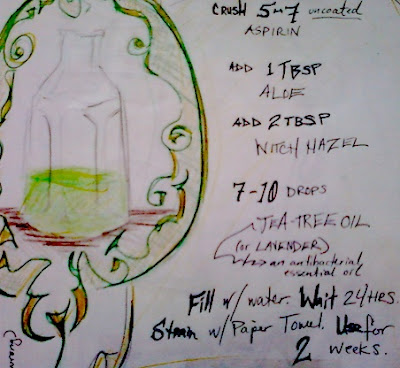 CRUSH 5-7 uncoated
ASPIRIN
ADD 1 TBSP
ALOE
ADD 2 TBSP
WITCH HAZEL
7-10 DROPS
TEA-TREE OIL
(or LAVENDER)
an antibacterial
essential oil
Fill w/ water. Wait 24 HRS.
Strain w/ Paper Towel. Use for
2 weeks.